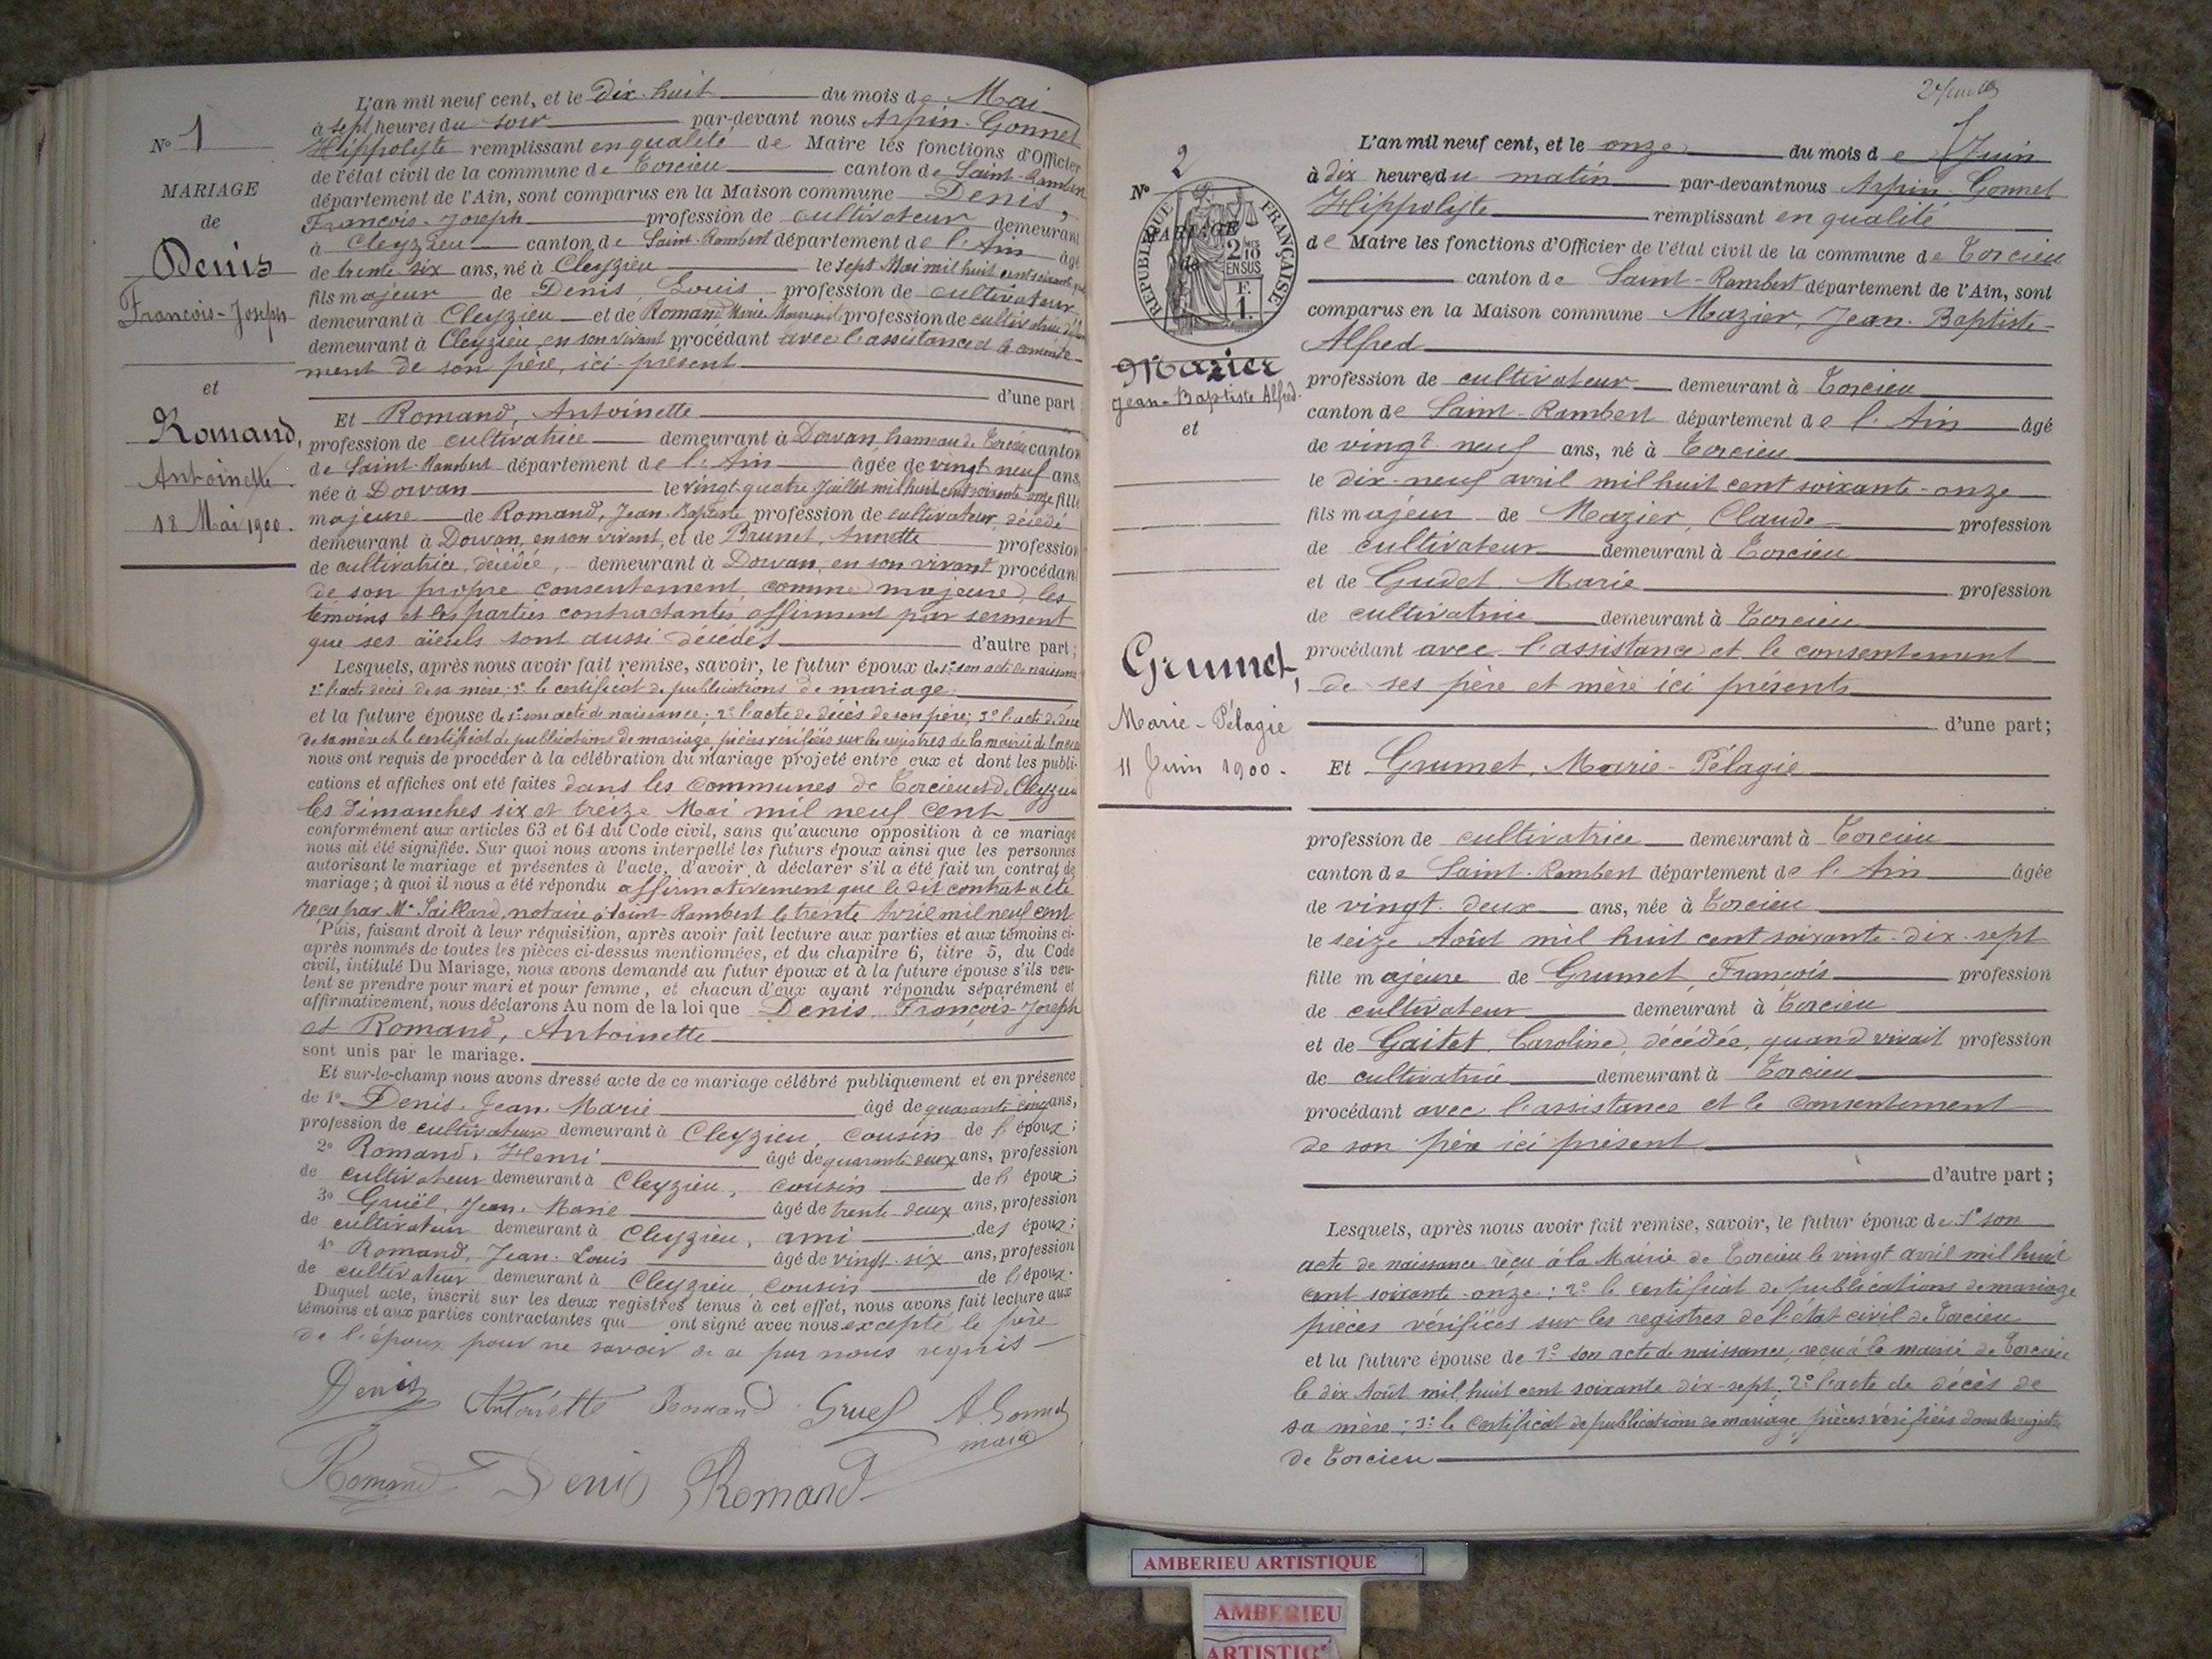 N° 1
MARIAGE
de
Denis
François-Joseph
et
Romand,
Antoinette
18 Mai 1900.
L'an mil neuf cent, et le dix-huit du mois de Mai
à sept heures du soir par-devant nous Arpin-Gonnet
Hippolyte remplissant en qualité de Maire les fonctions d'Officier
de l'état civil de la commune de Torcieu canton de Saint-Rambert
département de l'Ain, sont comparus en la Maison commune Denis,
François-Joseph profession de cultivateur demeurant
à Cleyzieu canton de Saint-Rambert département de l'Ain âgé
de trente six ans, né à Cleyzieu le sept Mai mil huit cent soixante
fils majeur de Denis, Louis profession de cultivateur
demeurant à Cleyzieu et de Romand Marie profession de cultivatrice
demeurant à Cleyzieu, en son vivant procédant avec l'assistance et le consente-
ment de son père, ici présent
d'une part
Et Romand, Antoinette
profession de cultivatrice demeurant à Dorvan hameau de Torcieu canton
de Saint-Rambert département de l'Ain âgée de vingt neuf ans,
née à Dorvan le vingt-quatre Juillet mil huit cent soixante-onze fille
majeure de Romand, Jean-Baptiste profession de cultivateur, décédé
demeurant à Dorvan, en son vivant, et de Brunet, Annette profession
de cultivatrice, décédée, demeurant à Dorvan, en son vivant procédant
de son propre consentement, comme majeure, les
témoins et les parties contractantes affirment par serment
que ses aïeuls sont aussi décédés d'autre part;
Lesquels, après nous avoir fait remise, savoir, le futur époux de 1° son acte de naissance
2° l'acte décès de sa mère; 3° le certificat de publications de mariage.
et la future épouse de 1° son acte de naissance; 2° l'acte de décès de son père; 3° l'acte de décès
de sa mère et le certificat de publications de mariage, pièces vérifiées sur les registres de la mairie
nous ont requis de procéder à la célébration du mariage projeté entre eux et dont les publi-
cations et affiches ont été faites dans les communes de Torcieu et de Cleyzieu
les dimanches six et treize Mai mil neuf cent
conformément aux articles 63 et 64 du Code civil, sans qu'aucune opposition à ce mariage
nous ait été signifiée. Sur quoi nous avons interpellé les futurs époux ainsi que les personnes
autorisant le mariage et présentes à l'acte, d'avoir à déclarer s'il a été fait un contrat de
mariage; à quoi il nous a été répondu affirmativement que le dit contrat a été
reçu par Me Saillard, notaire à Saint-Rambert le trente Avril mil neuf cent
Puis, faisant droit à leur réquisition, après avoir fait lecture aux parties et aux témoins ci-
après nommés de toutes les pièces ci-dessus mentionnées, et du chapitre 6, titre 5, du Code
civil, intitulé Du Mariage, nous avons demandé au futur époux et à la future épouse s'ils veu-
lent se prendre pour mari et pour femme, et chacun d'eux ayant répondu séparément et
affirmativement, nous déclarons Au nom de la loi que Denis, François-Joseph
et Romand, Antoinette
sont unis par le mariage.
Et sur-le-champ nous avons dressé acte de ce mariage célébré publiquement et en présence
de 1° Denis, Jean-Marie âgé de quarante cinq ans,
profession de cultivateur demeurant à Cleyzieu, cousin de l'époux;
2° Romand, Henri âgé de quarante deux ans, profession
de cultivateur demeurant à Cleyzieu, cousin de l'époux;
3° Gruël, Jean-Marie âgé de trente-deux ans, profession
de cultivateur demeurant à Cleyzieu, ami des époux;
4° Romand, Jean-Louis âgé de vingt-six ans, profession
de cultivateur demeurant à Cleyzieu, cousin de l'époux.
Duquel acte, inscrit sur les deux registres tenus à cet effet, nous avons fait lecture aux
témoins et aux parties contractantes qui ont signé avec nous excepté le père
de l'époux pour ne savoir de ce par nous requis
Denis Antoinette Romand Gruel A. Gonnet
maire
Romand Denis Romand
N° 2
MARIAGE
de
RÉPUBLIQUE FRANÇAISE
2/10
EN SUS
F.
1.
Mazier
Jean-Baptiste Alfred.
et
Grumet,
Marie-Pélagie
11 Juin 1900.
L'an mil neuf cent, et le onze du mois de Juin
à dix heures du matin par-devant nous Arpin-Gonnet
Hippolyte remplissant en qualité
de Maire les fonctions d'Officier de l'état civil de la commune de Torcieu
canton de Saint-Rambert département de l'Ain, sont
comparus en la Maison commune Mazier, Jean-Baptiste-
Alfred
profession de cultivateur demeurant à Torcieu
canton de Saint-Rambert département de l'Ain âgé
de vingt-neuf ans, né à Torcieu
le dix-neuf avril mil huit cent soixante-onze
fils majeur de Mazier, Claude profession
de cultivateur demeurant à Torcieu
et de Gudet Marie profession
de cultivatrice demeurant à Torcieu
procédant avec l'assistance et le consentement
de ses père et mère ici présents
d'une part;
Et Grumet, Marie-Pélagie
profession de cultivatrice demeurant à Torcieu
canton de Saint-Rambert département de l'Ain âgée
de vingt-deux ans, née à Torcieu
le seize Août mil huit cent soixante-dix-sept
fille majeure de Grumet, François profession
de cultivateur demeurant à Torcieu
et de Gaitet, Caroline, décédée, quand vivait profession
de cultivatrice demeurant à Torcieu
procédant avec l'assistance et le consentement
de son père ici présent
d'autre part;
Lesquels, après nous avoir fait remise, savoir, le futur époux de 1° son
acte de naissance reçu à la Mairie de Torcieu le vingt avril mil huit
cent soixante-onze; 2° le certificat de publications de mariage
pièces vérifiées sur les registres de l'état civil de Torcieu
et la future épouse de 1° son acte de naissance, reçu à la mairie de Torcieu
le dix Août mil huit cent soixante dix-sept, 2° l'acte de décès de
sa mère; 3° le certificat de publications de mariage, pièces vérifiées dans les registres
de Torcieu
AMBERIEU ARTISTIQUE
AMBERIEU
ARTISTIQ